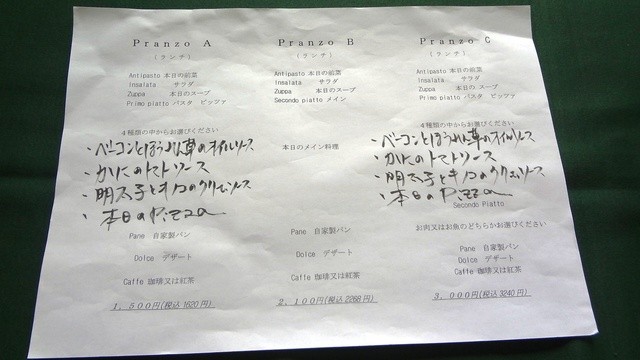 Pranzo A
(ランチ)
Antipasto 本日の前菜
Insalata サラダ
Zuppa 本日のスープ
Primo piatto パスタ ピッツァ
4種類の中からお選びください
・ベーコンとほうれん草のオイルソース
・かにのトマトソース
・明太子とキノコのクリームソース
・本日のPizza
Pane 自家製パン
Dolce デザート
Caffe 珈琲又は紅茶
1,500円(税込1620円)
Pranzo B
(ランチ)
Antipasto 本日の前菜
Insalata サラダ
Zuppa 本日のスープ
Secondo piatto メイン
本日のメイン料理
Pane 自家製パン
Dolce デザート
Caffe 珈琲又は紅茶
2,100円(税込2268円)
Pranzo C
(ランチ)
Antipasto 本日の前菜
Insalata サラダ
Zuppa 本日のスープ
Primo piatto パスタ ピッツァ
4種類の中からお選びください
・ベーコンとほうれん草のオイルソース
・かにのトマトソース
・明太子とキノコのクリームソース
・本日のPizza
Secondo Piatto
お肉又はお魚のどちらかお選びください
Pane 自家製パン
Dolce デザート
Caffe 珈琲又は紅茶
3,000円(税込3240円)